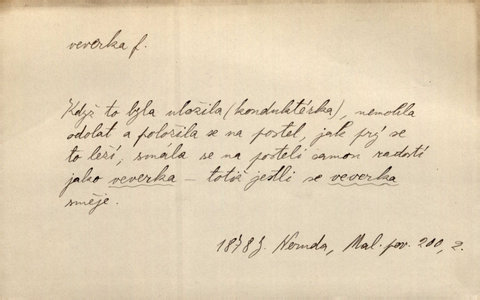 veverka f.
Když to byla uložila (konduktérka), nemohla
odolat a položila se na postel, jak prý se
to leží, smála se na posteli samou radostí
jako veverka – totiž jestli se veverka
směje.
1878 Neruda, Mal. pov. 200, 2.